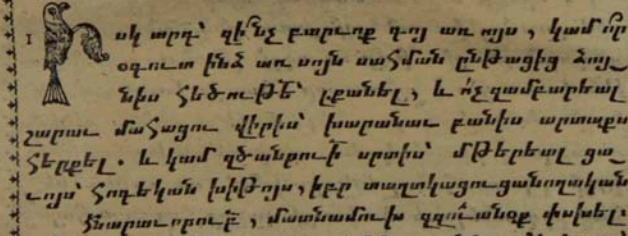 1 Իսկ արդ՝ զի՞նչ բարւոք գոյ առ այս, կամ ո՞ր
օգուտ ինձ առ սոյն սահման ընթացից ձայ֊
նիս հեծութե՟ լքանել, և ո՛չ զամբարեալ
շարաւ մահացու վիրիս՝ խարանաւ բանիս արտաքս
հերքել. և կամ զծանրու՟ի սրտիս՝ մթերեալ ցա֊
ւոյս՝ հոգեկան խիթոյս, իբր տաղտկացուցանողական
հնարաւորութբ՟, մատնամուխ զգուանօք փսխել։